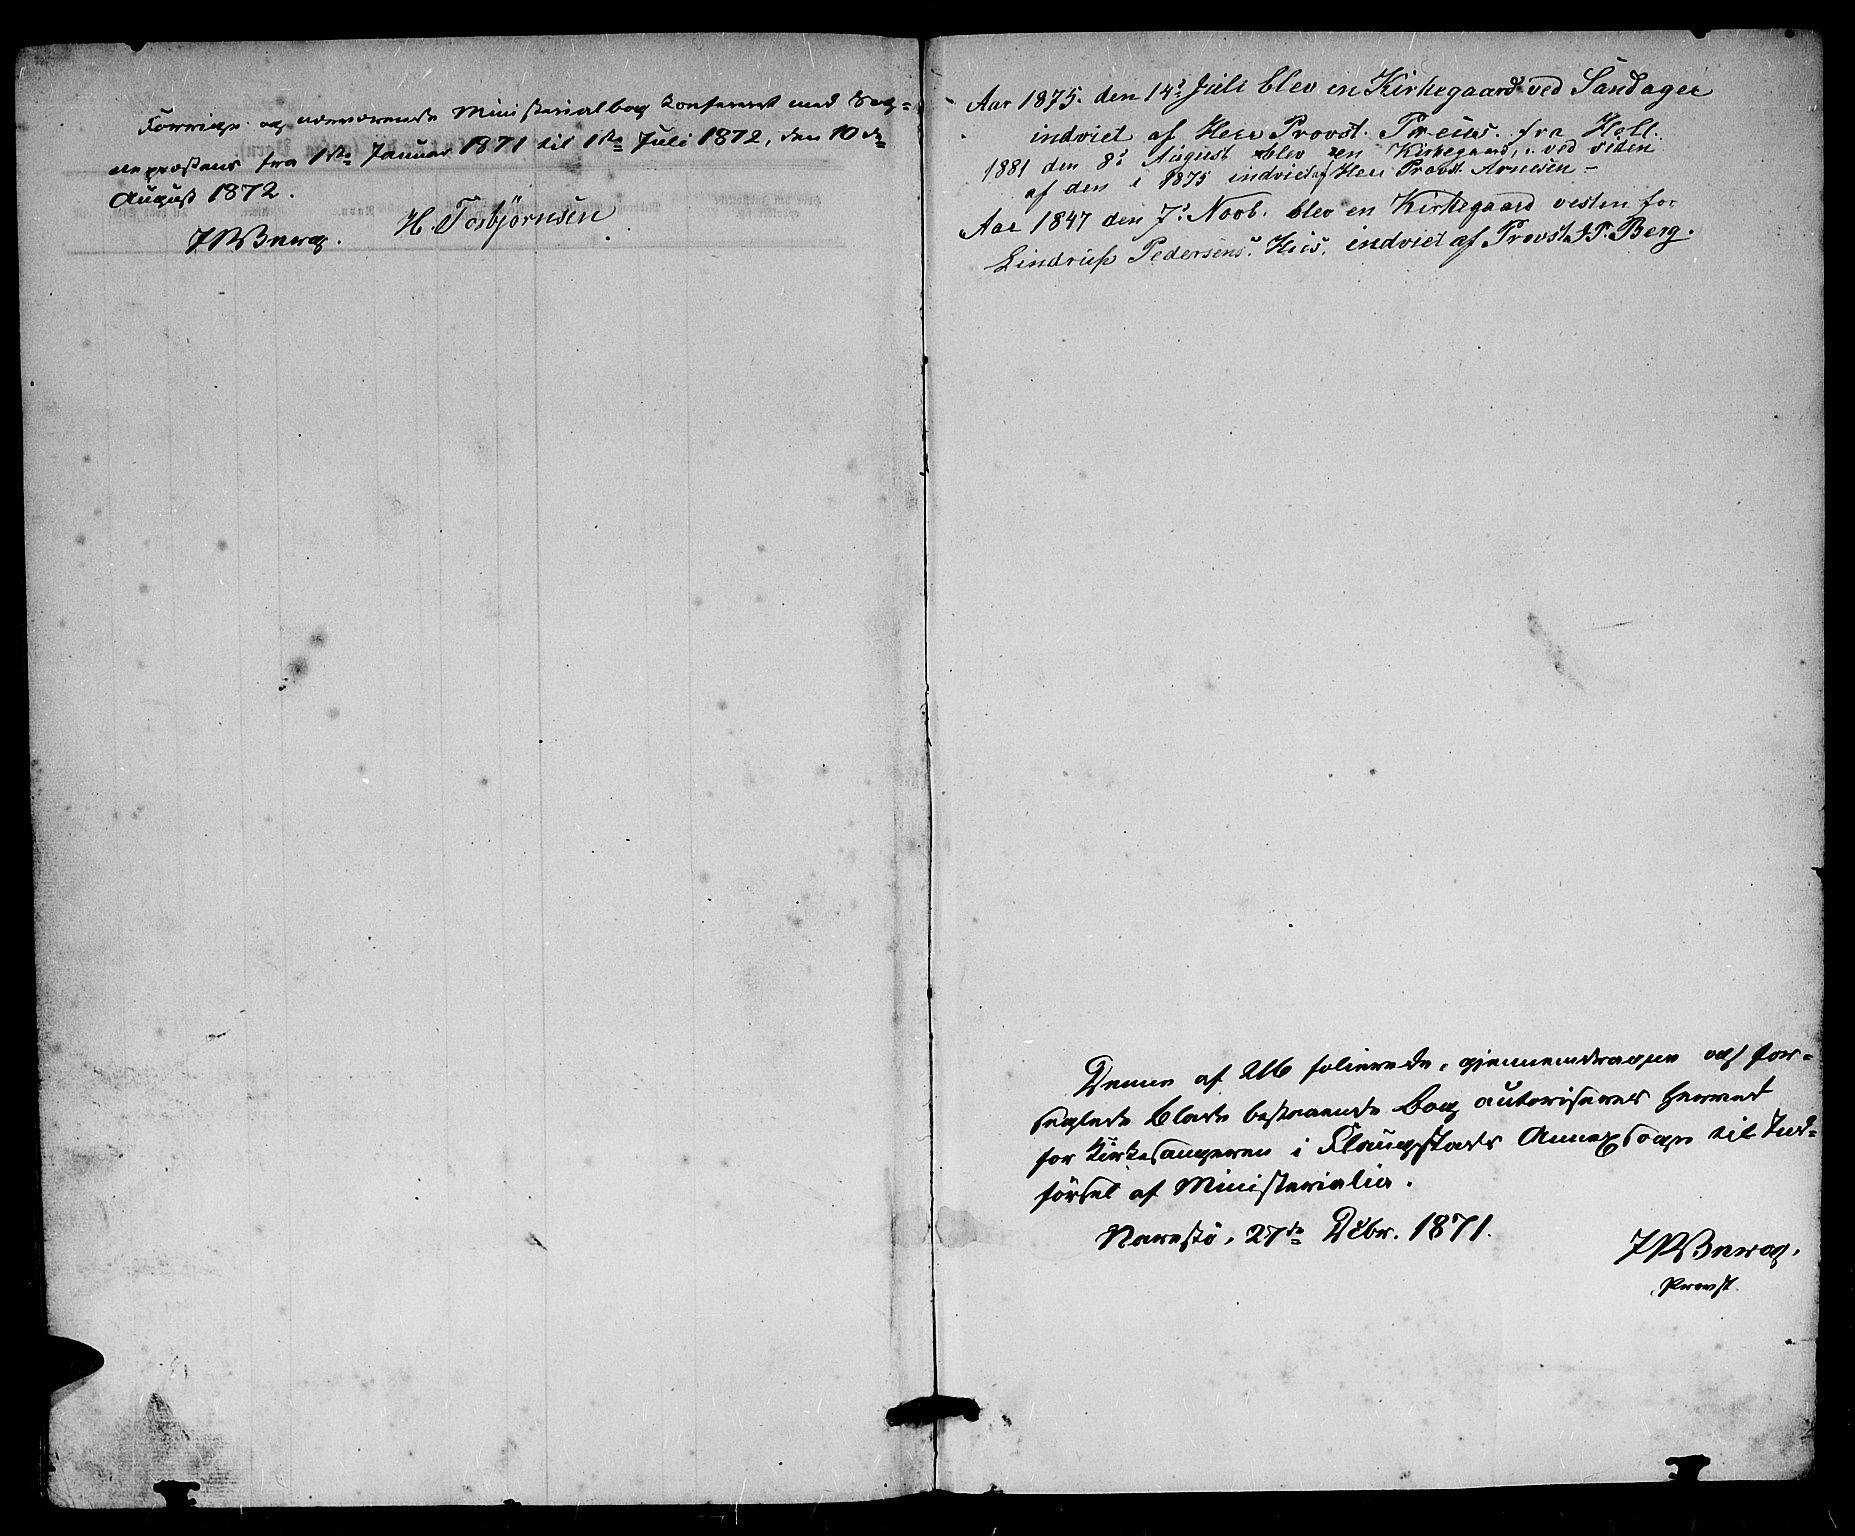 Forrige og nærværende Ministerialbog konfereret med Sog-
nepræstens fra 1ste Januar 1871 til 1ste Juli 1872, den 10de
August 1872.
JPBerg. H. Tosbjørnsen
Aar 1875. den 14de Juli blev en Kirkegaard ved Sandager
indviet af Herr Provst. Preus. fra Holt.
1881 den 8de August blev en Kirkegaard, ved siden
af den i 1875 indviet af Herr Provst Arnesen –
Aar 1847 den 7de Novb. blev en Kirkegaard vesten for
Pedersens. Hus. indviet af Provst J.P. Berg.
Denne af 216 folierede, gjennemdragne og for-
seglede Blade bestaaende Bog autoriseres herved
for Kirkesangeren i Flaugstads Annexsogn til Ind-
førsel af Ministerialia.
Narestø, 27de Dcbr. 1871.
JPBerg.
Provst.